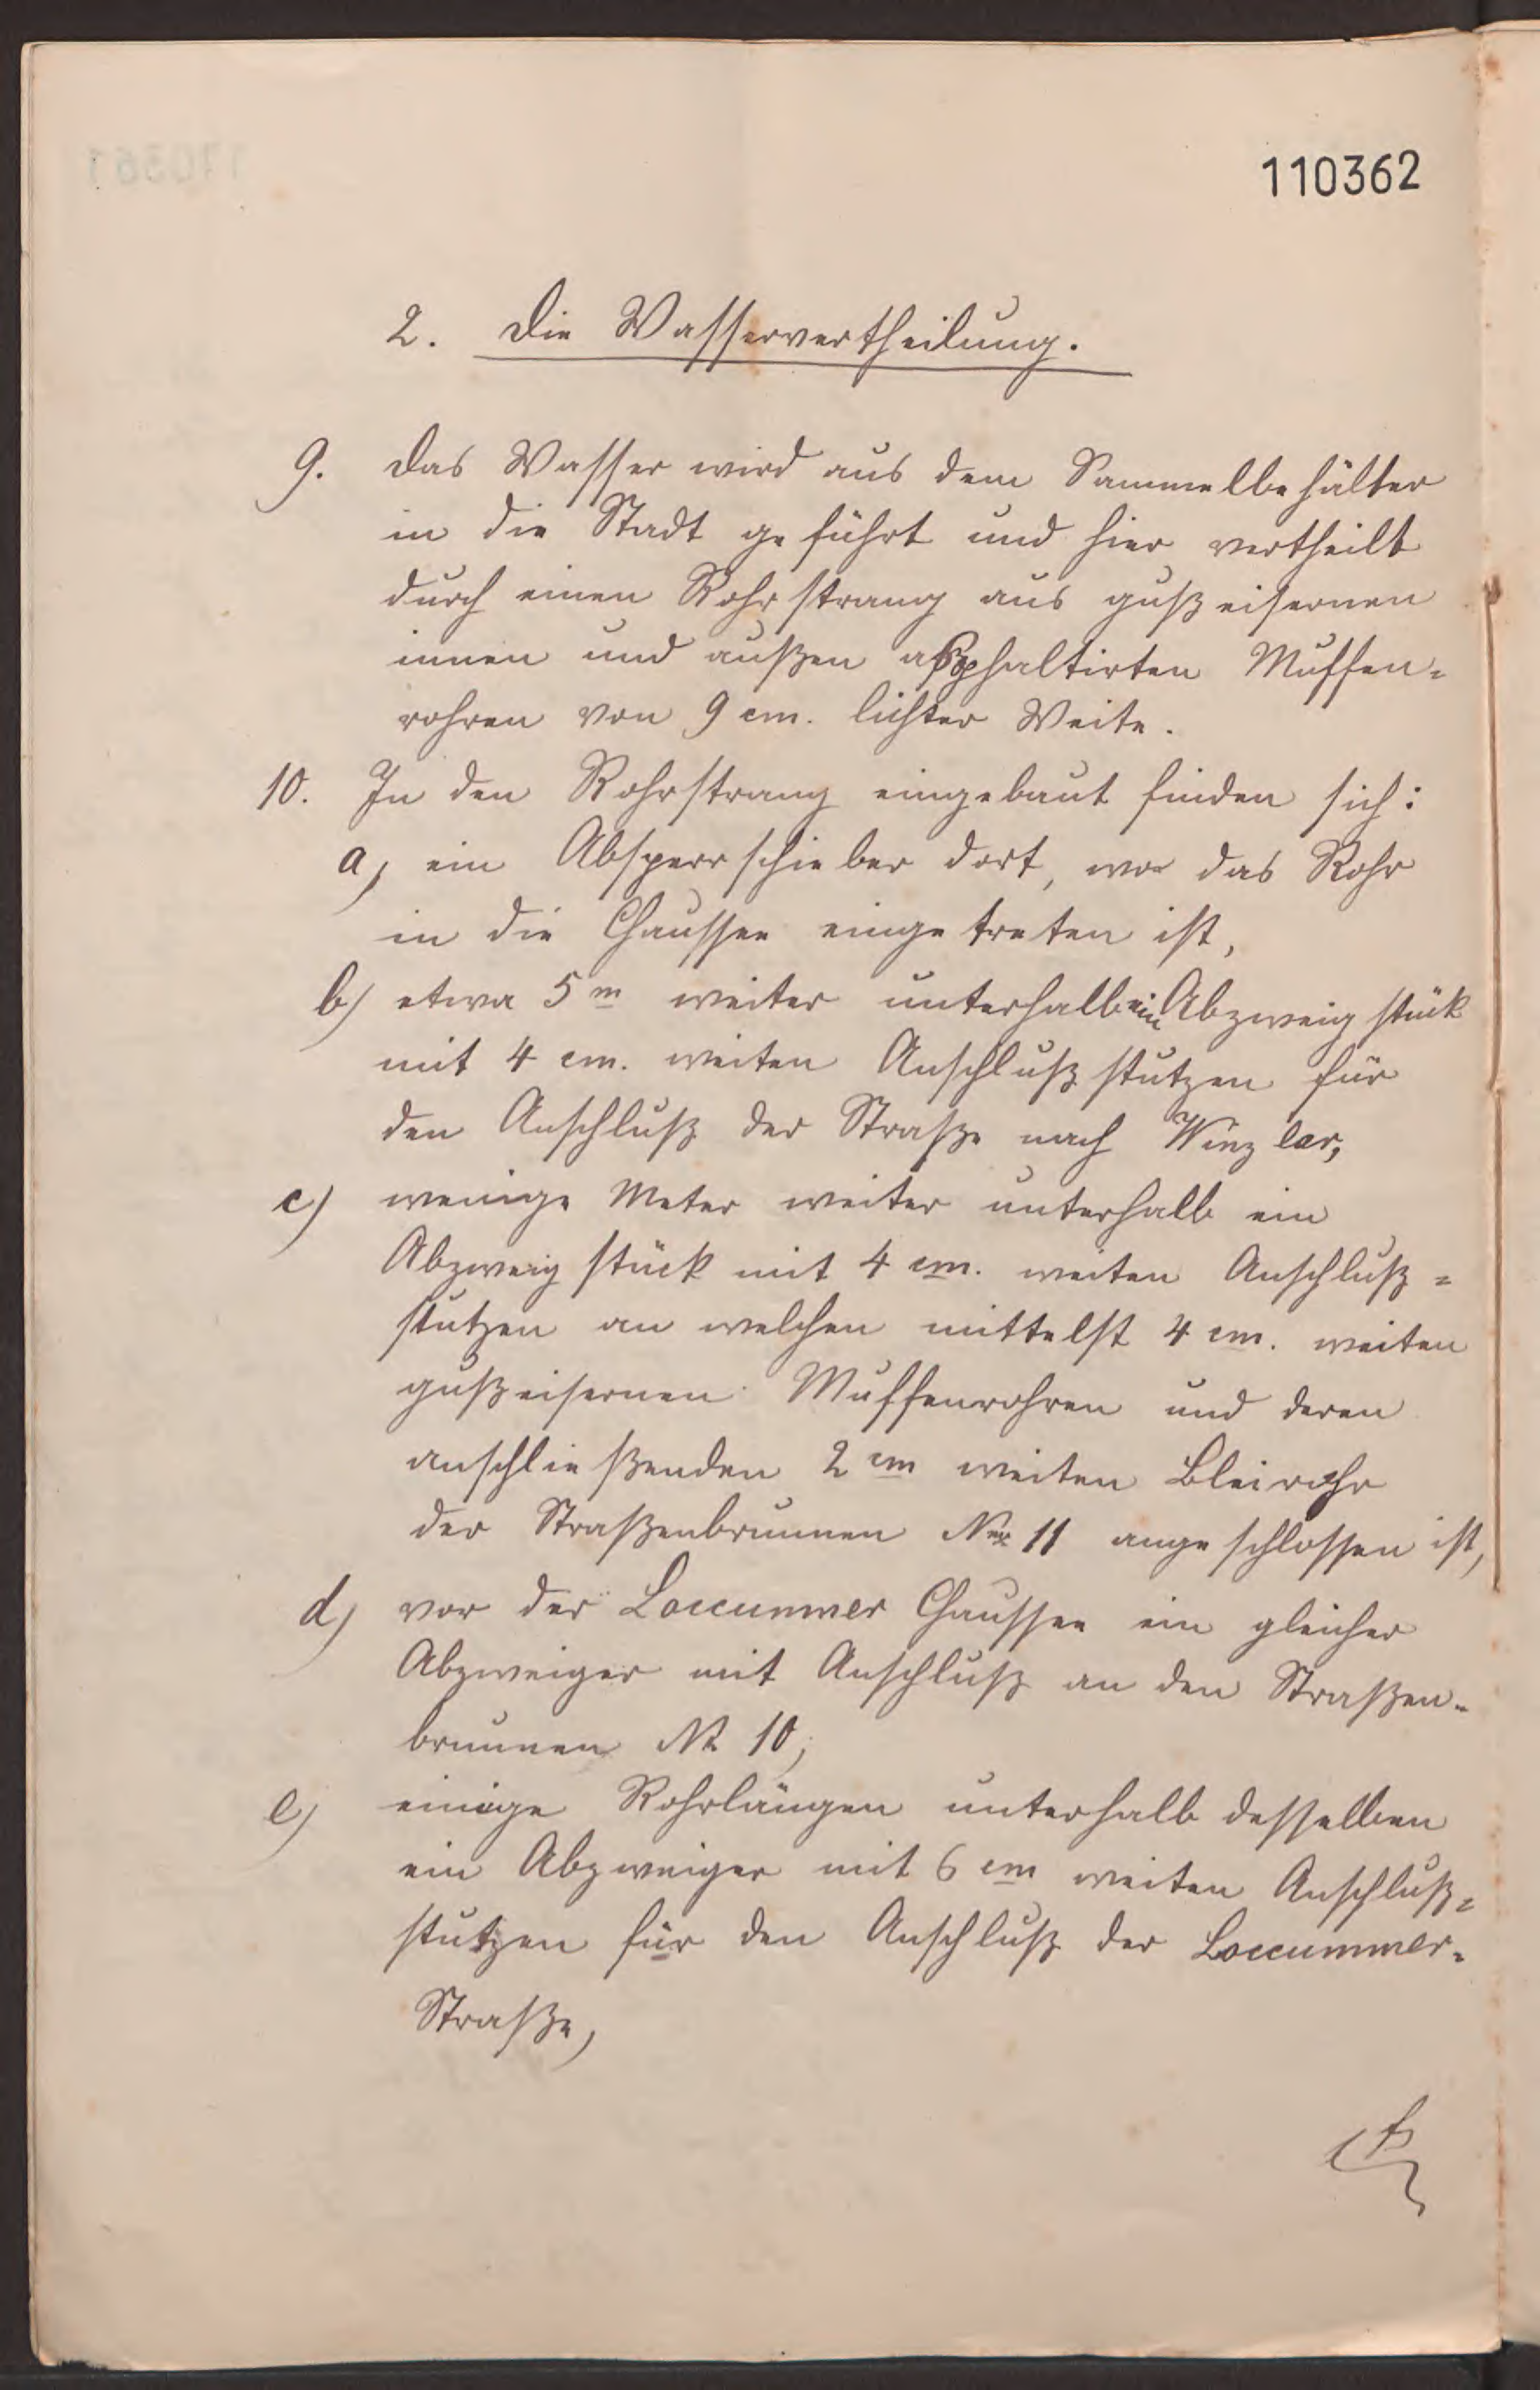 110362
2. Die Wasservertheilung.
9. Das Wasser wird aus dem Sammelbehälter
in die Stadt geführt und hier vertheilt
durch einen Rohrstrang aus gußeisernen
innen und außen asphaltirten Muffen=
rohren von 9 cm. lichter Weite.
10. In den Rohrstrang eingebaut finden sich:
a) ein Absperrschieber dort, wo das Rohr
in die Chaussee eingetreten ist,
b) etwa 5 m weiter unterhalb ein Abzweigstück
mit 4 cm. weiten Anschlußstutzen für
den Anschluß der Straße nach Winzlar,
c) wenige Meter weiter unterhalb ein
Abzweigstück mit 4 cm. weiten Anschluß=
stutzen an welchen mittelst 4 cm. weiten
gußeisernen Muffenrohren und deren
anschließenden 2 cm weiten Bleirohr
der Straßenbrunnen No 11 angeschlossen ist,
d) vor der Loccummer Chaussee ein gleicher
Abzweiger mit Anschluß an den Straßen-
brunnen No 10,
e) einige Rohrlängen unterhalb desselben
ein Abzweiger mit 6 cm weiten Anschluß=
stutzen für den Anschluß der Loccummer=
Straße,